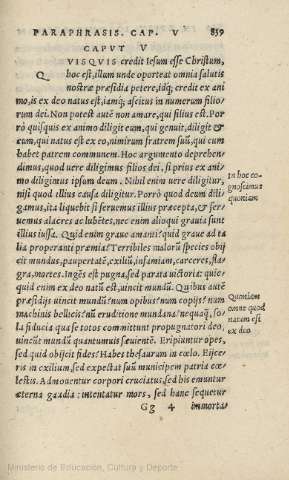 PARAPHRASIS. CAP. V 839
CAPVT V
QVISQVIS credit Iesum esse Christum,
hoc est, illum unde oporteat omnia salutis
nostræ præsidia petere, idq; credit ex ani
mo, is ex deo natus est, iamq; ascitus in numerum filio
rum dei. Non potest autē non amare, qui filius est. Por
rò quisquis ex animo diligit eum, qui genuit, diligit &
eum, qui natus est ex eo, nimirum fratrem suū, qui cum
habet patrem communem. Hoc argumento deprehen
dimus, quod uere diligimus filios dei, si prius ex ani
mo diligimus ipsum deum. Nihil enim uere diligitur,
nisi quod illius causa diligitur. Porrò quod deum dili
gamus, ita liquebit si seruemus illius præcepta, & ser
uemus alacres ac lubētes, nec enim alioqui grauia sunt
illius iussa. Quid enim graue amanti? quid graue ad ta
lia properanti præmia? Terribiles malorū species obij
cit mundus, paupertatē, exiliū, infamiam, carceres, fla
gra, mortes. Ingēs est pugna, sed parata uictoria: quic
quid enim ex deo natū est, uincit mundū. Quibus autē
præsidijs uincit mundū? num opibus? num copijs? num
machinis bellicis? nū eruditione mundana? nequaq̃, so
la fiducia qua se totos committunt propugnatori deo,
uincūt mundū quantumuis sæuientē. Eripiuntur opes,
sed quid obijcit fides? Habes thesaurum in cœlo. Eijce
ris in exilium, sed expectat suū municipem patria cœ
lestis. Admouentur corpori cruciatus, sed his emuntur
æterna gaudia: intentatur mors, sed hanc sequetur
Gg 4 immorta
In hoc co-
gnoscimus
quoniam
Quoniam
omne quod
natum est
ex deo
Ministerio de Educación, Cultura y Deporte